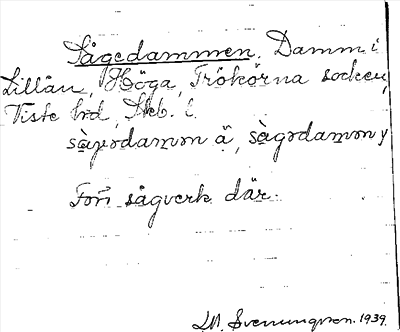 Sågedammen. Damm i
Lillån, Höga, Trökörna socken,
Viste hd, Skb. l.
sàgədamən ä, sàgədamən y
Förr sågverk där.
Svenungsson. 1939.